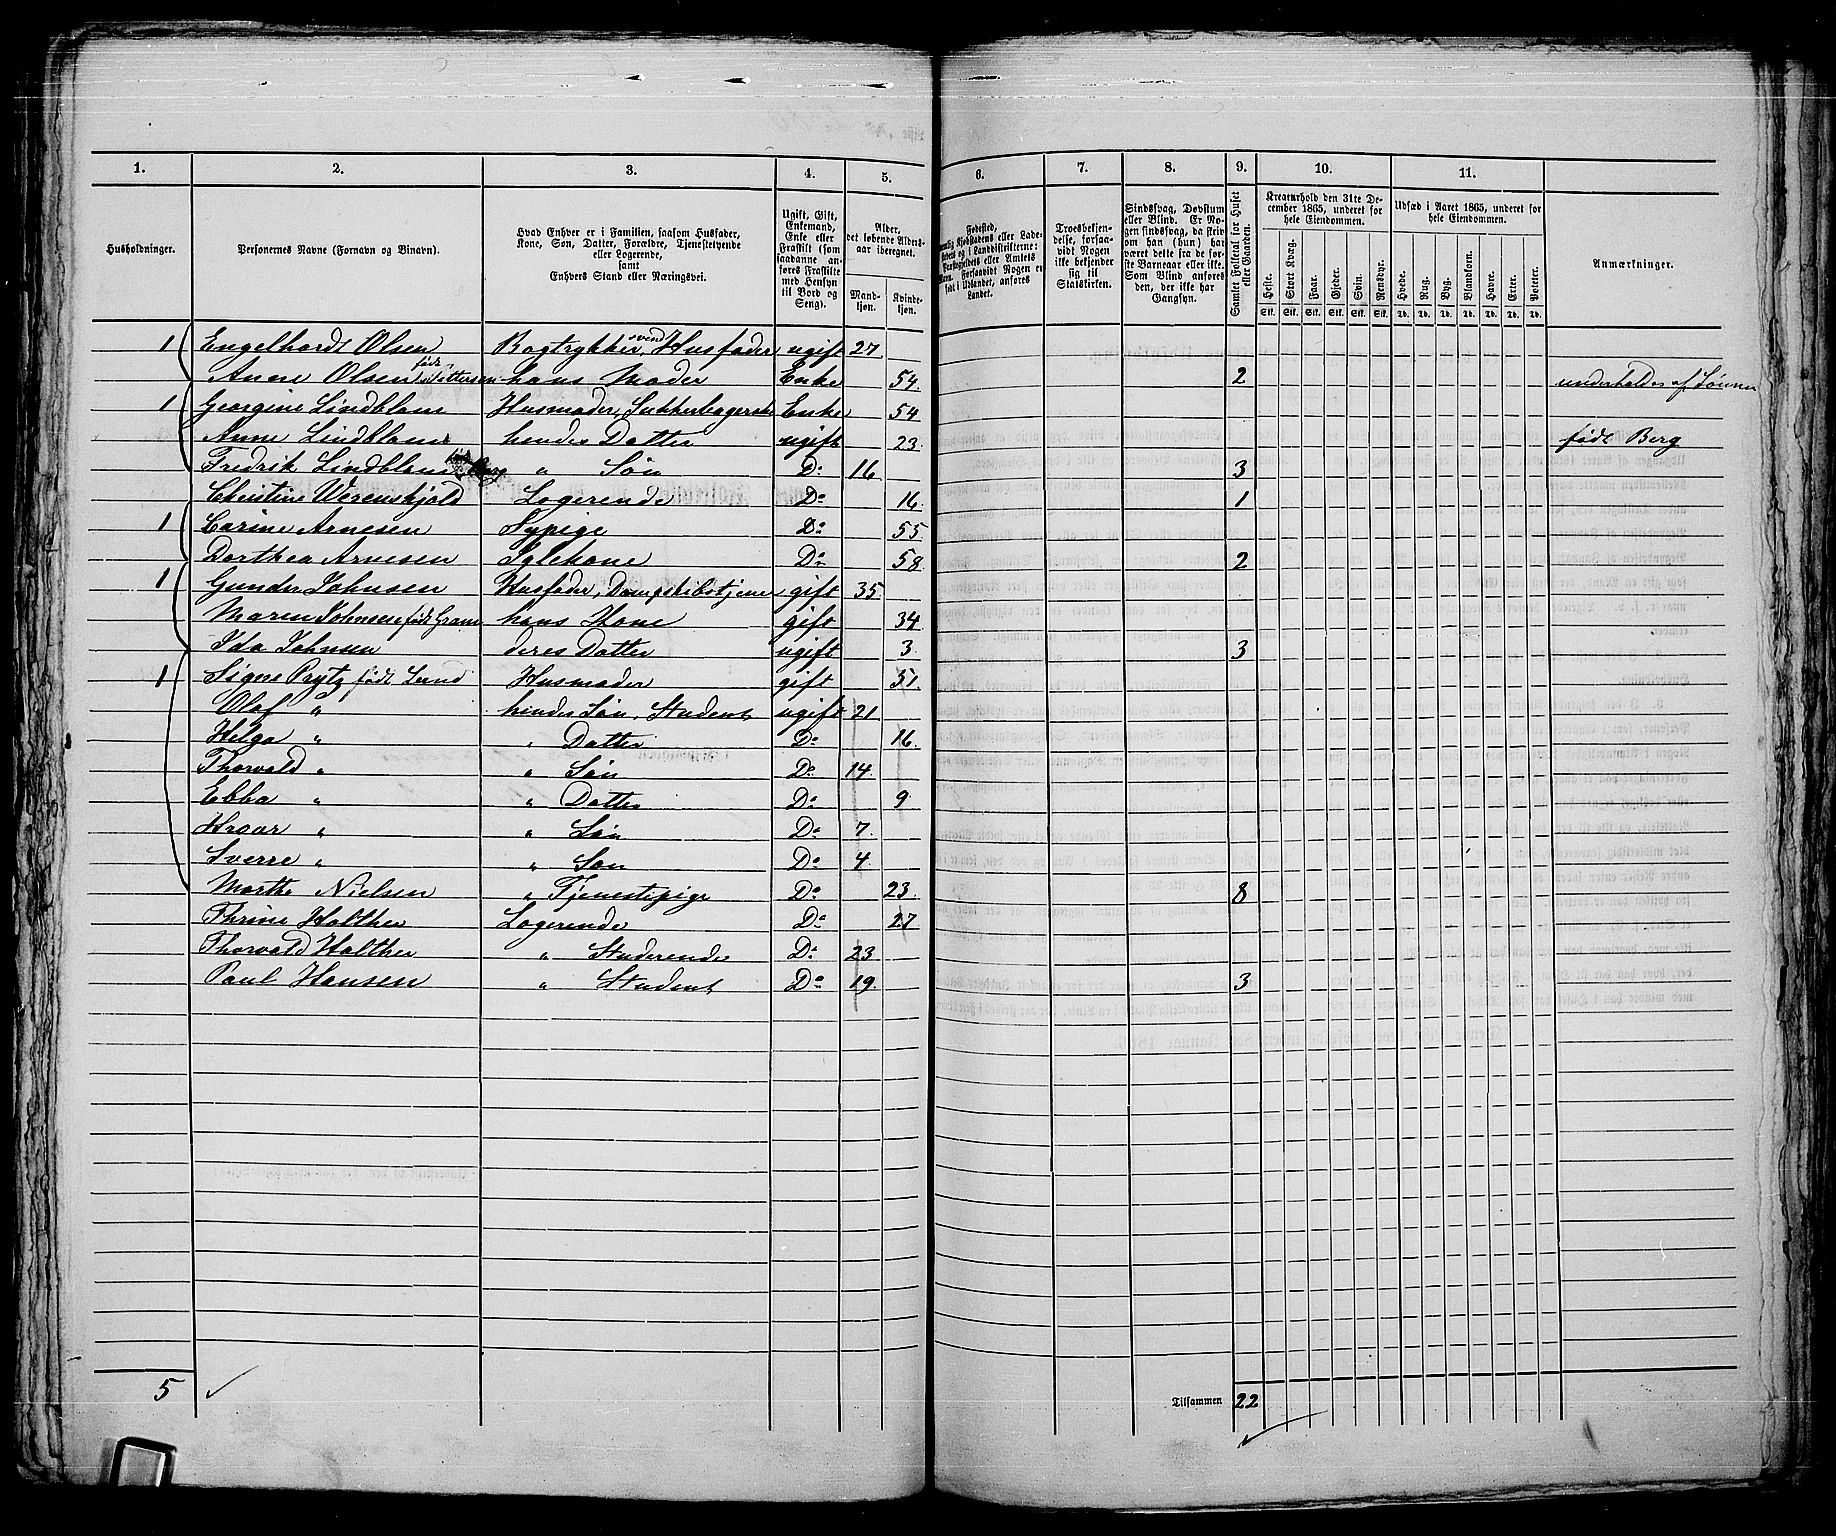 1. 2. 3. 4. 5. 6. 7. 8. 9. 10. 11.
Husholdninger.
Personernes Navne (Fornavn og Binavn).
Hvad Enhver er i Familien, saasom Husfader,
Kone, Søn, Datter, Forældre, Tjenestetyende
eller Logerende,
samt
Enhvers Stand eller Næringsvei.
Ugift, Gift,
Enkemand,
Enke eller
Fraskilt (som
saadanne an-
føres Fraskilte
med Hensyn
til Bord og
Seng).
Alder,
det løbende Alders-
aar iberegnet.
Mand-
kjøn.
Kvinde-
kjøn.
Fødested,
Kjøbstadens eller Lade-
stedets og i Landdistrikterne:
Præstegjeldets eller Amtets
Navn. Forsaavidt Nogen er
født i Udlandet, anføres
Landet.
Troesbekjen-
delse, forsaa-
vidt Nogen
ikke bekjender
sig til
Statskirken.
Sindssvag, Døvstum
eller Blind. Er No-
gen sindssvag, da skriv
om han (hun) har
været dette fra de før-
ste Barneaar eller ikke.
Som Blind anføres
den, der ikke har
Gangsyn.
Samlet Folketal for Huset
eller Gaarden.
Kreaturhold den 31te De-
cember 1865, underet for
hele Eiendommen.
Heste. Stort Kvæg. Faar. Gjeder. Svin. Rensdyr.
Stk. Stk. Stk. Stk. Stk. Stk.
Udsæd i Aaret 1865, underet for
hele Eiendommen.
Hvede. Rug. Byg. Blandkorn. Havre. Erter. Poteter.
Td. Td. Td. Td. Td. Td. Td.
Anmærkninger.
1 Engelhardt Olsen Bogtrykkersvend, Husfader ugift 27
Anne Olsen født Pettersen hans Moder Enke 54. 2 underholdes af Sønnen
1 Georgine Lindblam Husmoder, Sukkerbagerske Enke 54
Anne Lindblam hendes Datter ugift 23. født Berg
Fredrik Lindblam " Søn Do 16 3
Christine Werenskjold Logerende Do 16. 1
1 Carine Arnesen Sypige Do 55
Dorthea Arnesen Iglekone Do 58. 2
1 Gunder Johnsen Husfader, Dampskibstjener gift 35
Maren Johnsen født Gram hans Kone gift 34
Ida Johnsen deres Datter ugift 3. 3
1 Signe Prytz født Lund Husmoder gift 51.
Olaf " hendes Søn, Student ugift 21
Helga " " Datter Do 16.
Thorvald " " Søn Do 14.
Ebba " " Datter Do 9
Hroar " " Søn Do 7.
Sverre " " Søn Do 4.
Marthe Nielsen " Tjenestepige Do 23. 8
Thrine Holther Logerende Do 27
Thorvald Holther " Studerende Do 23
Paul Hansen " Student Do 19. 3
5
Tilsammen 22